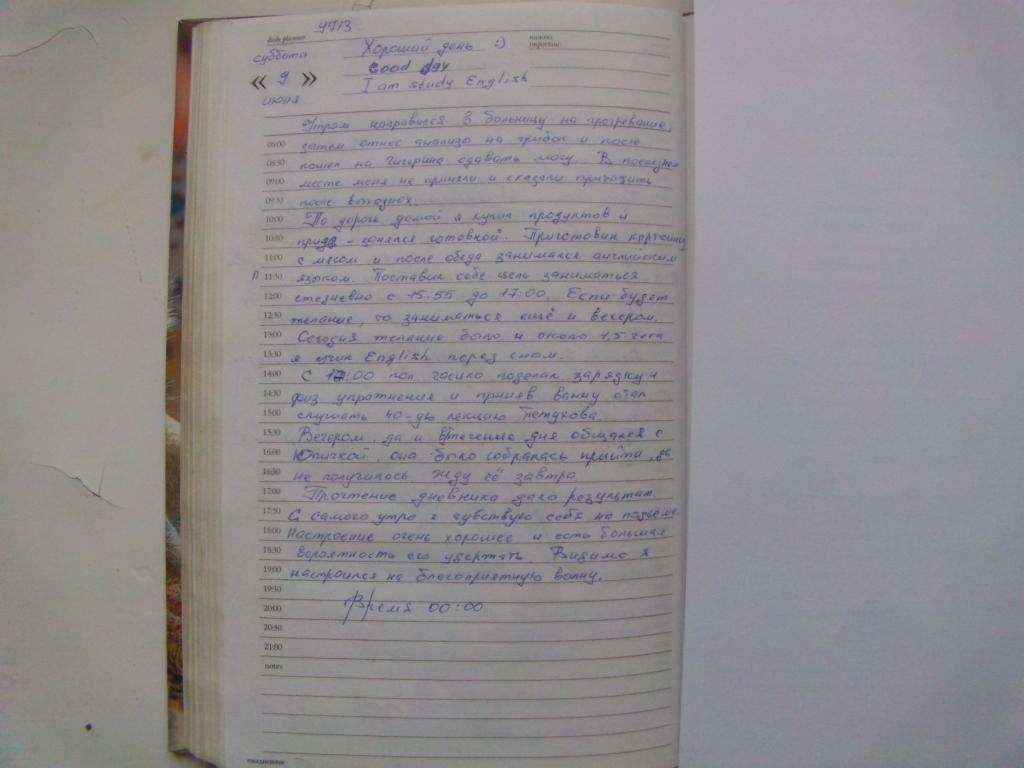 9713
daily planner
важное
important
суббота
Хороший день :)
« 9 »
Good day
июня
I am study English
Утром направился в больницу на прогревание,
08:00 затем отнес анализы на грибок и после
08:30 пошел на Чигерина сдавать мочу. В последнем
09:00 месте меня не приняли и сказали приходить
09:30 после выходных.
10:00 По дороге домой я купил продуктов и
10:30 придя - занялся готовкой. Приготовил картошку
11:00 с мясом и после обеда занимался английским
П 11:30 языком. Поставил себе цель заниматься
12:00 ежедневно с 15:55 до 17:00. Если будет
12:30 желание, то заниматься ещё и вечером.
13:00 Сегодня желание было и около 1,5 часа
13:30 я учил English перед сном.
14:00 С 17:00 пол часика поделал зарядку и
14:30 физ упражнения и приняв ванну стал
15:00 слушать 40-ую лекцию Петухова.
15:30 Вечером, да и втечение дня общался с
16:00 Юличкой, она было собралась прийти, да
16:30 не получилось. Жду её завтра.
17:00 Прочтение дневника дало результат.
17:30 С самого утра я чувствую себя на подъеме
18:00 Настроение очень хорошее и есть большая
18:30 вероятность его удержать. Видимо я
19:00 настроился на благоприятную волну.
19:30
20:00 Время 00:00
20:30
21:00
notes
ежедневник